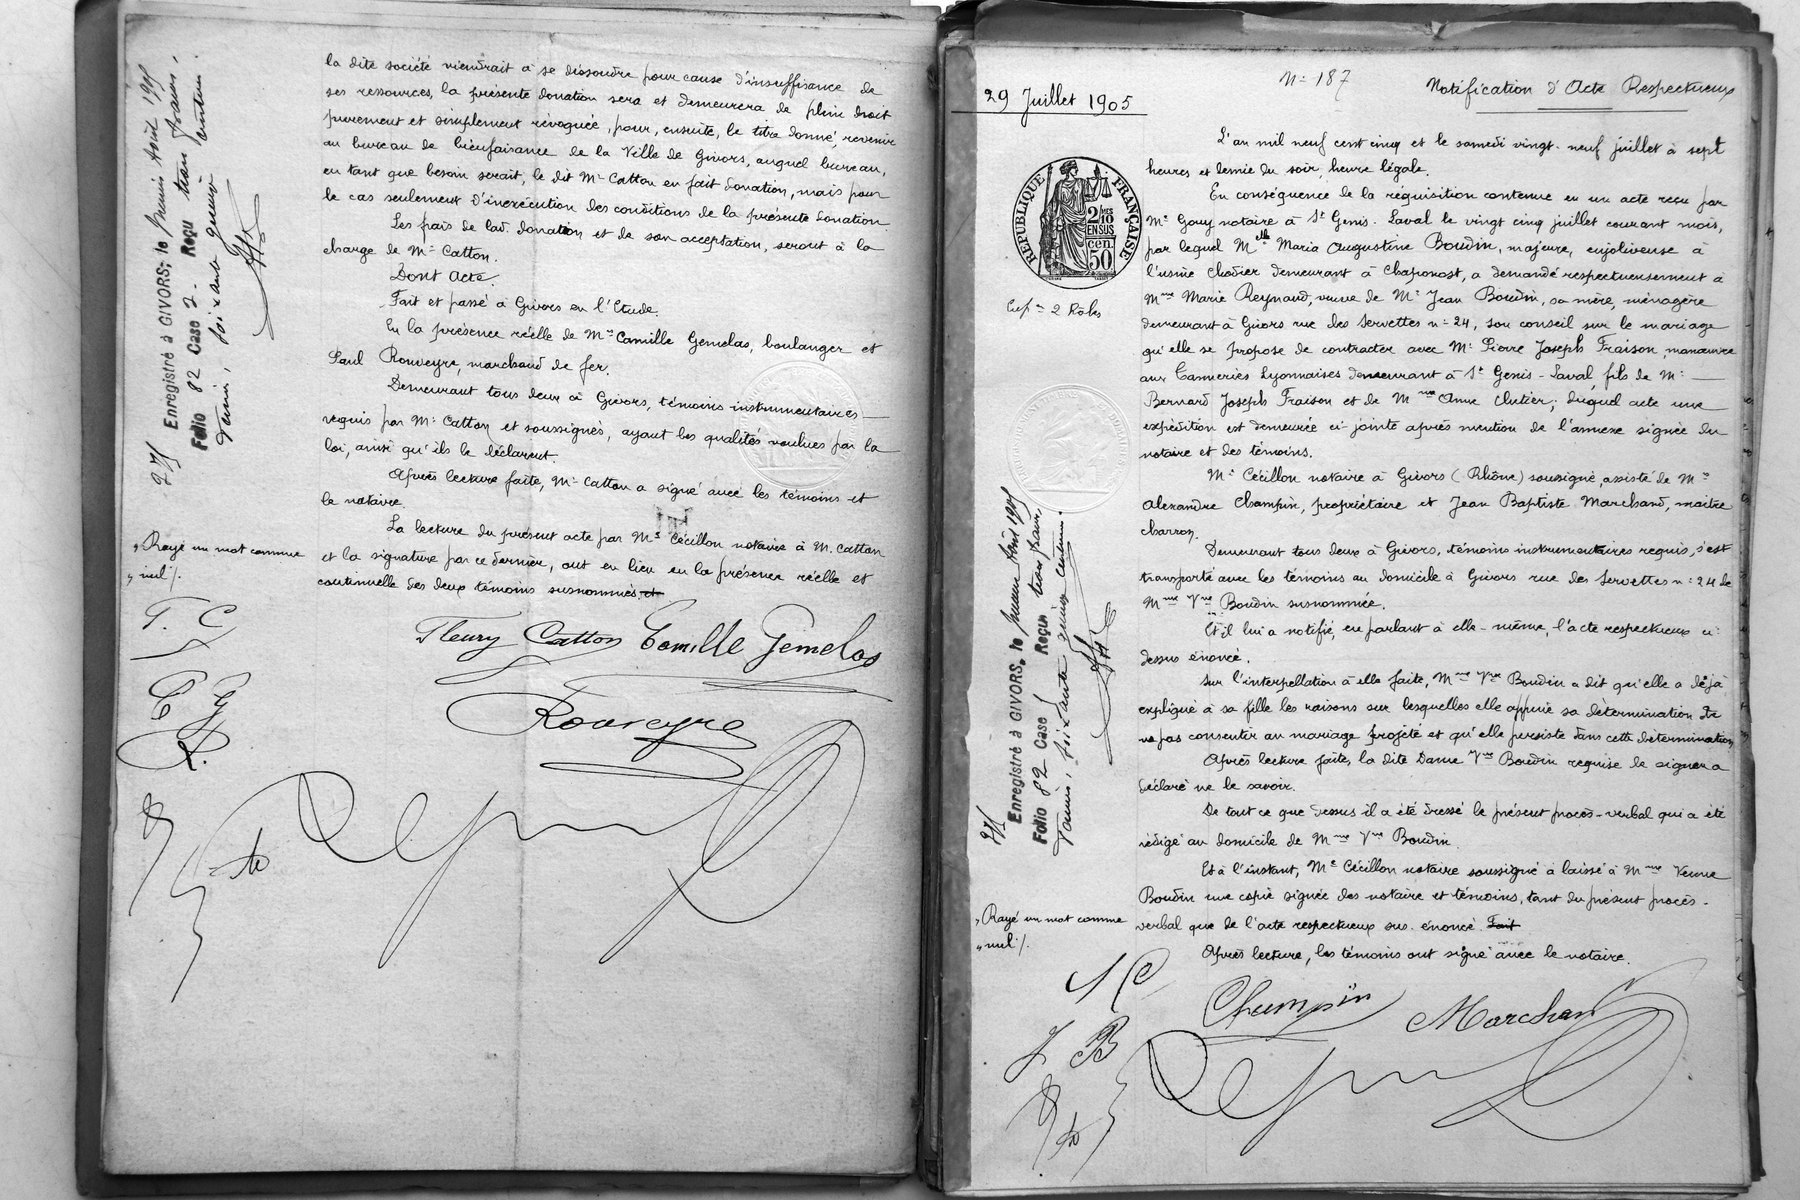 la dite société viendrait à se dissoudre pour cause d'insuffisance de
ses ressources, la présente donation sera et demeurera de plein droit
purement et simplement révoquée, pour, ensuite, le titre donné, revenir
au bureau de bienfaisance de la Ville de Givors, auquel bureau,
en tant que besoin serait, le dit Mr Catton en fait donation, mais pour
le cas seulement d'inexécution des conditions de la présente donation
Les frais de lad. donation et de son acceptation, seront à la
charge de Mr Catton.
Dont Acte.
Fait et passé à Givors en l'Etude.
En la présence réelle de Mrs Camille Gemelas, boulanger et
Paul Rouveyre, marchand de fer.
Demeurant tous deux à Givors, témoins instrumentaires
requis par Mr Catton et soussignés, ayant les qualités voulues par la
loi, ainsi qu'ils le déclarent.
Après lecture faite, Mr Catton a signé avec les témoins et
le notaire.
La lecture du présent acte par Me Cécillon notaire à M. Catton
et la signature par ce dernier, ont eu lieu en la présence réelle et
continuelle des deux témoins susnommés. et
Enregistré à GIVORS, le premier Août 1905
Folio 82 Case 2. Reçu trois francs,
Décimes, soixante quinze centimes.
271
"Rayé un mot comme
"nul"/.
F. C
C G
R.
Fleury Catton Camille Gemelas
Rouveyre
29 Juillet 1905
No 187
Notification d'Acte Respectueux
L'an mil neuf cent cinq et le samedi vingt-neuf juillet à sept
heures et demie du soir, heure légale.
En conséquence de la réquisition contenue en un acte reçu par
Me Gouy notaire à St Genis-Laval le vingt cinq juillet courant mois,
par lequel Mlle Maria Augustine Boudin, majeure, enjoliveuse à
l'usine Chodier demeurant à Chaponost, a demandé respectueusement à
Mme Marie Reynaud, veuve de Mr Jean Boudin, sa mère, ménagère
demeurant à Givors rue des Servettes no 24, son conseil sur le mariage
qu'elle se propose de contracter avec Mr Pierre Joseph Fraison, manœuvre
aux Tanneries Lyonnaises demeurant à St Genis-Laval, fils de Mr
Bernard Joseph Fraison et de Mme Anne Autier; duquel acte une
expédition est demeurée ci-jointe après mention de l'annexe signée du
notaire et des témoins.
Me Cécillon notaire à Givors (Rhône) soussigné, assisté de Mrs
Alexandre Champin, propriétaire et Jean Baptiste Marchand, maitre
charron.
Demeurant tous deux à Givors, témoins instrumentaires requis, s'est
transporté avec les témoins au domicile à Givors rue des Servettes no 24 de
Mme Vve Boudin susnommée.
Et il lui a notifié, en parlant à elle-même, l'acte respectueux ci-
dessus énoncé.
Sur l'interpellation à elle faite, Mme Vve Boudin a dit qu'elle a déjà
expliqué à sa fille les raisons sur lesquelles elle appuie sa détermination de
ne pas consentir au mariage projeté et qu'elle persiste dans cette détermination
Après lecture faite, la dite Dame Vve Boudin requise de signer a
déclaré ne le savoir.
De tout ce que dessus il a été dressé le présent procès-verbal qui a été
rédigé au domicile de Mme Vve Boudin.
Et à l'instant, Me Cécillon notaire soussigné à laissé à Mme Veuve
Boudin une copie signée des notaire et témoins, tant du présent procès-
verbal que de l'acte respectueux sus-énoncé. Fait
Après lecture, les témoins ont signé avec le notaire.
RÉPUBLIQUE FRANÇAISE
2 10mes
EN SUS
50 cen.
Exp on 2 Rôles
Enregistré à GIVORS, le premier Août 1905
Folio 82 Case 1 Reçu trois francs,
Décimes, soixante quinze centimes.
271
"Rayé un mot comme
"nul"/.
A C
J B
Champin Marchand